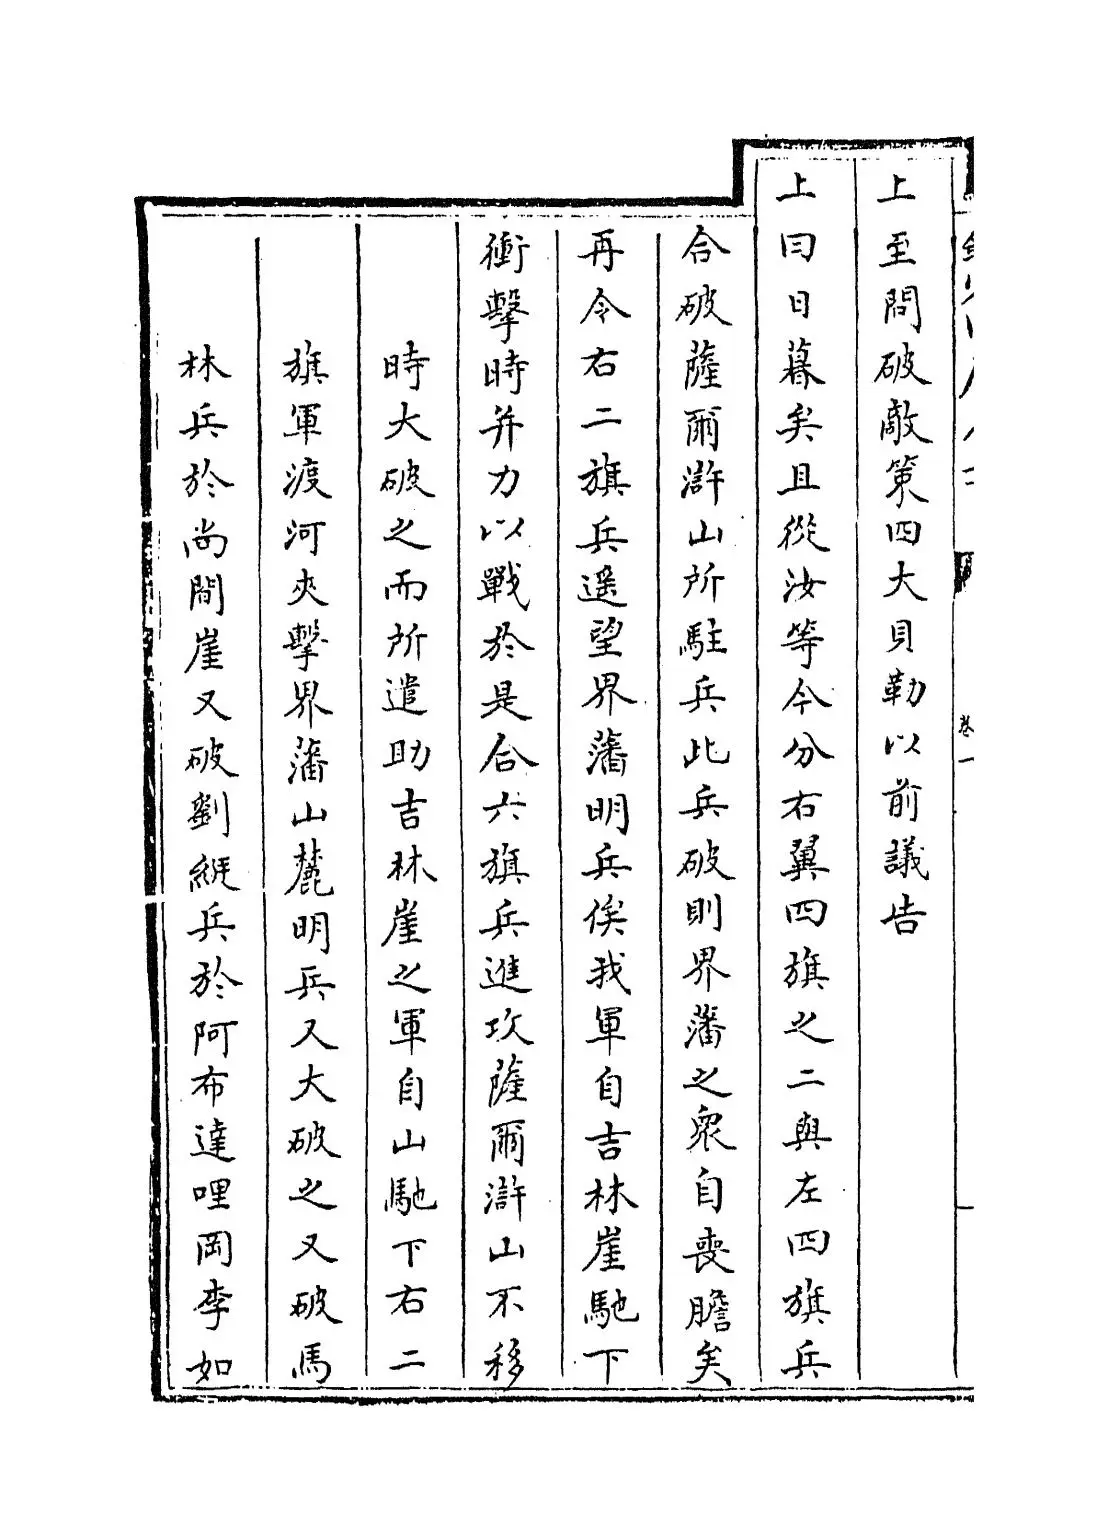 上至問破敵策四大貝勒以前議告
上曰日暮矣且從汝等今分右翼四旗之二與左四旗兵
合破薩爾滸山所駐兵此兵破則界藩之衆自喪膽矣
再令右二旗兵遥望界藩明兵俟我軍自吉林崖馳下
衝擊時并力以戰於是合六旗兵進攻薩爾滸山不移
時大破之而所遣助吉林崖之軍自山馳下右二
旗軍渡河夾擊界藩山麓明兵又大破之又破馬
林兵於尚間崖又破劉綎兵於阿布達哩岡李如
卷一